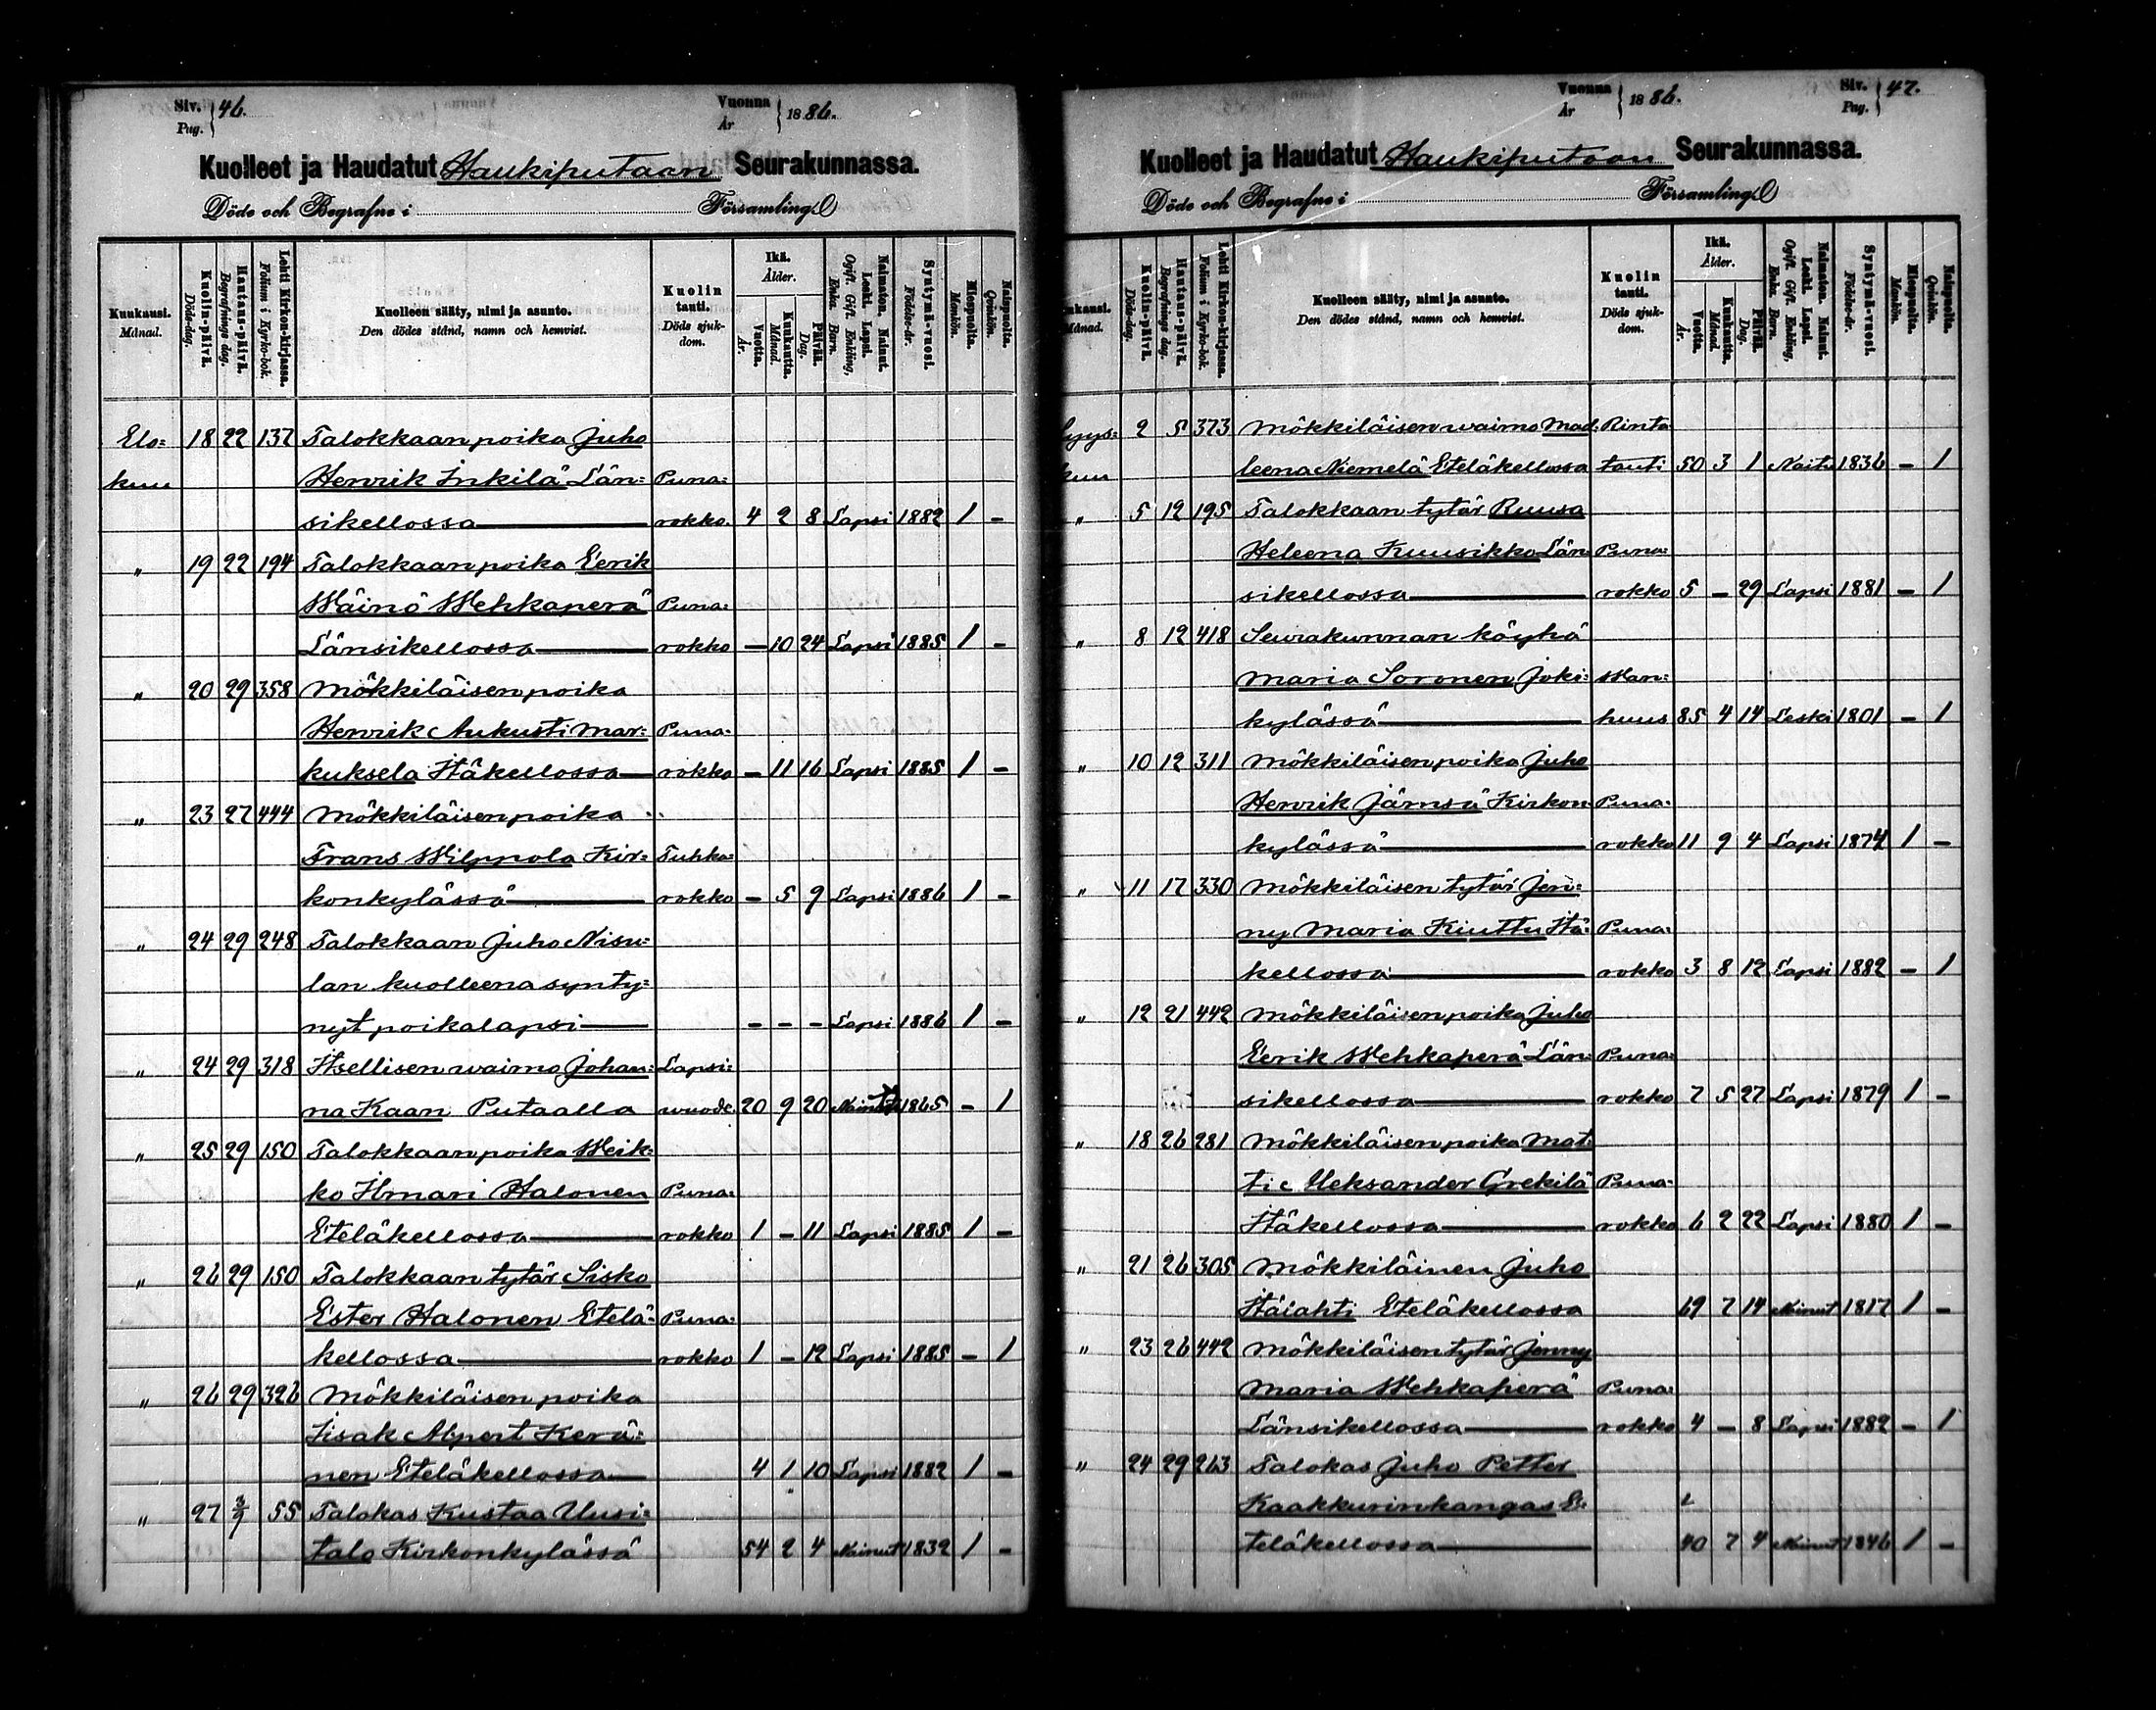 Siv. Pag. 46.
Vuonna År 1886.
Kuolleet ja Haudatut Haukiputaan Seurakunnassa.
Döde och Begrafne i Församling
Kuukausi. Månad.
Kuolin-päivä. Döds-dag.
Hautaus-päivä. Begrafnings dag.
Lehti Kirkon-kirjassa. Folium i Kyrko-bok.
Kuolleen sääty, nimi ja asunto. Den dödes stånd, namn och hemvist.
Kuolin tauti. Döds sjuk-dom.
Ikä. Ålder.
Vuotta. År.
Kuukautta. Månad.
Päivää. Dag.
Naimaton. Nainut. Leski. Lapsi. Ogift. Gift. Enkling, Enka. Barn.
Syntymä-vuosi. Födelse-år.
Miespuolta. Mankön.
Naispuolta. Qvinkön.
Elo= 18 22 137 Talokkaan poika Juho
kuu Henrik Inkilä Län= Puna=
sikellossa rokko. 4 2 8 Lapsi 1882 1 -
" 19 22 194 Talokkaan poika Eerik
Wäinö Wehkaperä Puna=
Länsikellossa rokko - 10 24 Lapsi 1885 1 -
" 20 29 358 Mökkiläisen poika
Henrik Aukusti Mar= Puna=
kuksela Itäkellossa rokko - 11 16 Lapsi 1885 1 -
" 23 27 444 Mökkiläisen poika
Frans Wilppola Kir= Tuhka=
konkylässä rokko - 5 9 Lapsi 1886 1 -
" 24 29 248 Talokkaan Juho Nisu=
lan kuolleena synty=
nyt poikalapsi - - - Lapsi 1886 1 -
" 24 29 318 Itsellisen waimo Johan= Lapsi=
na Kaan Putaalla wuode. 20 9 20 1865 - 1
" 25 29 150 Talokkaan poika Weik=
ko Ilmari Halonen Puna=
Eteläkellossa rokko 1 - 11 Lapsi 1885 1 -
" 26 29 150 Talokkaan tytär Sisko
Ester Halonen Etelä= Puna=
kellossa rokko 1 - 12 Lapsi 1885 - 1
" 26 29 326 Mökkiläisen poika
Iisak Alpert Kerä=
nen Eteläkellossa 4 1 10 Lapsi 1882 1 -
" 27 3/9 55 Talokas Kustaa Uusi=
talo Kirkonkylässä 54 2 4 Nainut 1832 1 -
Vuonna År 1886.
Siv. Pag. 47.
Kuolleet ja Haudatut Haukiputaan Seurakunnassa.
Döde och Begrafne i Församling
Kuukausi. Månad.
Kuolin-päivä. Döds-dag.
Hautaus-päivä. Begrafnings dag.
Lehti Kirkon-kirjassa. Folium i Kyrko-bok.
Kuolleen sääty, nimi ja asunto. Den dödes stånd, namn och hemvist.
Kuolin tauti. Döds sjuk-dom.
Ikä. Ålder.
Vuotta. År.
Kuukautta. Månad.
Päivää. Dag.
Naimaton. Nainut. Leski. Lapsi. Ogift. Gift. Enkling, Enka. Barn.
Syntymä-vuosi. Födelse-år.
Miespuolta. Mankön.
Naispuolta. Qvinkön.
Syys= 2 5 373 Mökkiläisen waimo Mad. Rinta
kuu leena Niemelä Eteläkellossa tauti 50 3 1 Naitu 1836 - 1
" 5 12 195 Talokkaan tytär Ruusa
Heleena Kuusikko Län Puna=
sikellossa rokko 5 - 29 Lapsi 1881 - 1
" 8 12 418 Seurakunnan köyhä
Maria Soronen Joki= Wan=
kylässä huus 85 4 14 Leski 1801 - 1
" 10 12 311 Mökkiläisen poika Juho
Henrik Jämsä Kirkon Puna=
kylässä rokko 11 9 4 Lapsi 1874 1 -
" 11 17 330 Mökkiläisen tytär Jen=
ny Maria Kiuttu Itä= Puna=
kellossa rokko 3 8 12 Lapsi 1882 - 1
" 12 21 442 Mökkiläisen poika Juho
Eerik Wehkaperä Län= Puna=
sikellossa rokko 7 5 27 Lapsi 1879 1 -
" 18 26 281 Mökkiläisen poika Mat=
ti Aleksander Grekilä Puna=
Itäkellossa rokko 6 2 22 Lapsi 1880 1 -
" 21 26 305 Mökkiläinen Juho
Itälahti Eteläkellossa 69 7 14 Nainut 1817 1 -
" 23 26 442 Mökkiläisen tytär Jenny
Maria Wehkaperä Puna=
Länsikellossa rokko 4 - 8 Lapsi 1882 - 1
" 24 29 263 Talokas Juho Petter
Kaakkurinkangas E=
teläkellossa 40 7 4 Nainut 1846 1 -